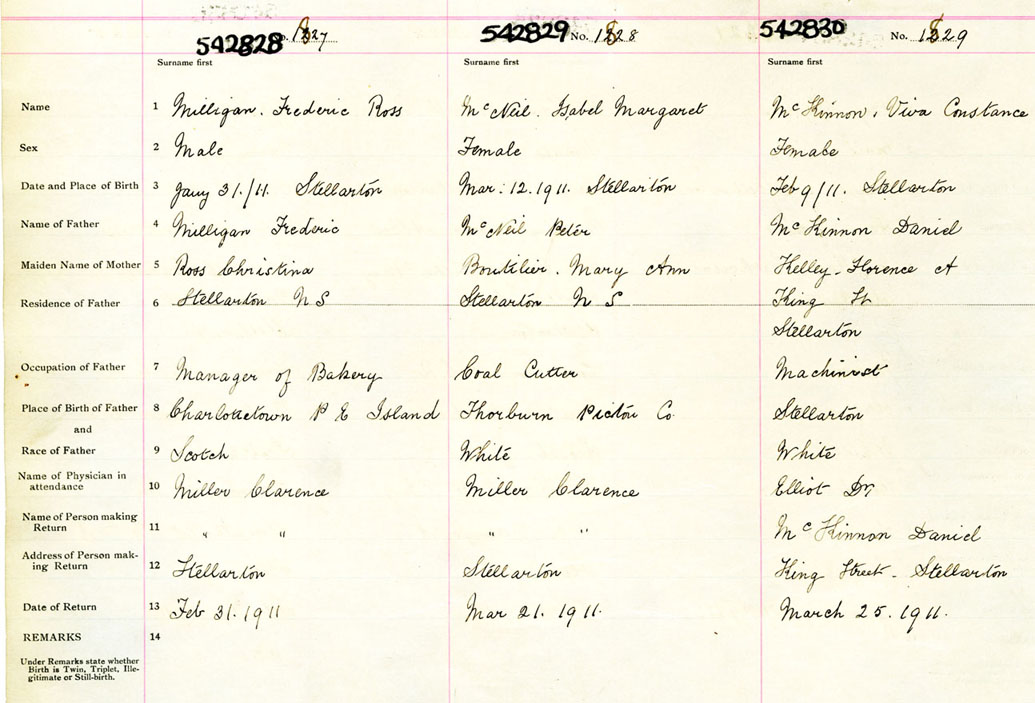 542828 No. 1827
542829 No. 1828
542830 No. 1829
Surname first
Surname first
Surname first
Name 1 Milligan. Frederic Ross
McNeil. Isabel Margaret
McKinnon, Viva Constance
Sex 2 Male
Female
Female
Date and Place of Birth 3 Jany 31./11. Stellarton
Mar: 12. 1911. Stellarton
Feb 9/11. Stellarton
Name of Father 4 Milligan Frederic
McNeil Peter
McKinnon Daniel
Maiden Name of Mother 5 Ross Christina
Boutilier. Mary Ann
Kelley. Florence A
Residence of Father 6 Stellarton N S
Stellarton N S
King St
Stellarton
Occupation of Father 7 Manager of Bakery
Coal Cutter
Machinist
Place of Birth of Father 8 Charlottetown P E Island
Thorburn Pictou Co.
Stellarton
and
Race of Father 9 Scotch
White
White
Name of Physician in
attendance 10 Miller Clarence
Miller Clarence
Elliot Dr,
Name of Person making
Return 11 " "
" "
McKinnon Daniel
Address of Person mak-
ing Return 12 Stellarton
Stellarton
King Street - Stellarton
Date of Return 13 Feb 31. 1911
Mar 21. 1911.
March 25. 1911.
REMARKS 14
Under Remarks state whether
Birth is Twin, Triplet, Ille-
gitimate or Still-birth.